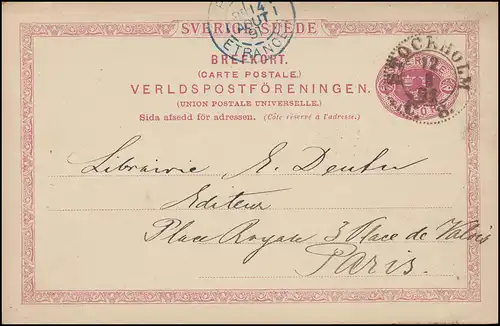 SVERIGE SUÈDE
14
AOUT
91
ETRANGER
BREFKORT.
(CARTE POSTALE.)
VERLDSPOSTFÖRENINGEN.
(UNION POSTALE UNIVERSELLE.)
Sida afsedd för adressen. (Côté réservé à l'adresse.)
STOCKHOLM
12
8
Librairie E. Dentu
Editeur
Place Royale 3 Place de Valois
Paris.